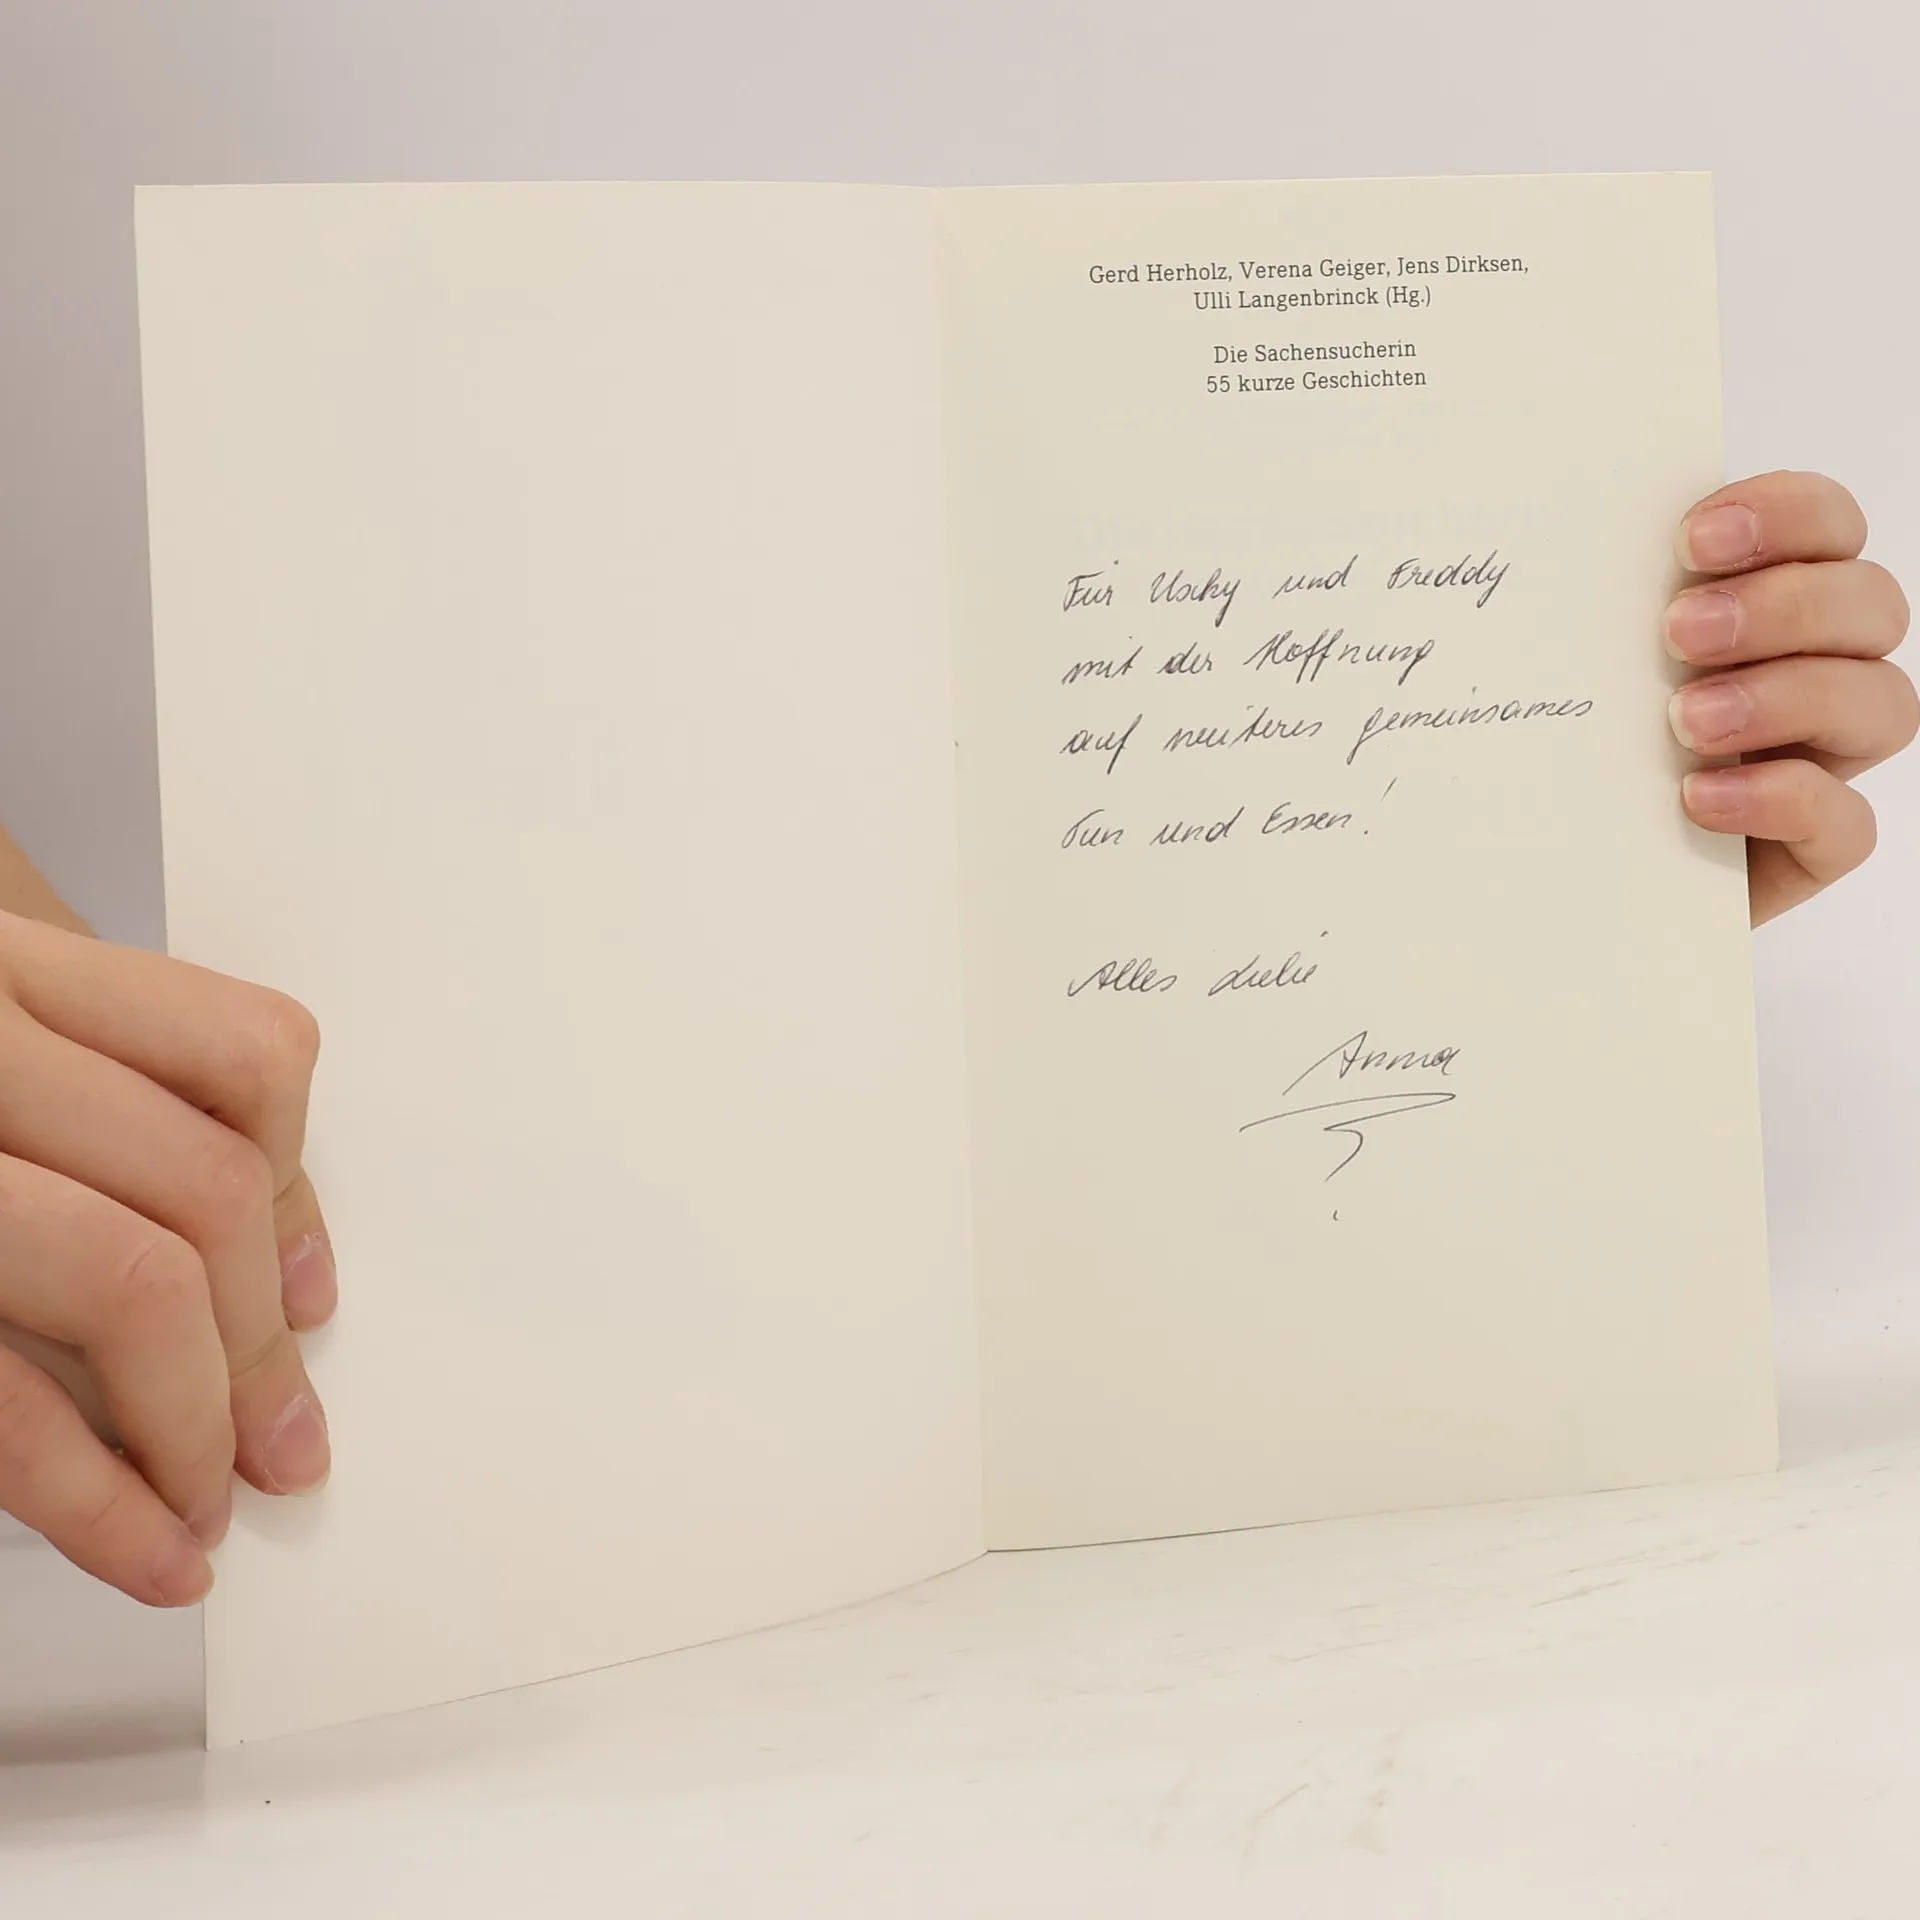 Gerd Herholz, Verena Geiger, Jens Dirksen,
Ulli Langenbrinck (Hg.)
Die Sachensucherin
55 kurze Geschichten
Für Uschy und Freddy
mit der Hoffnung
auf weiteres gemeinsames
Tun und Essen!
Alles Liebe
Anna